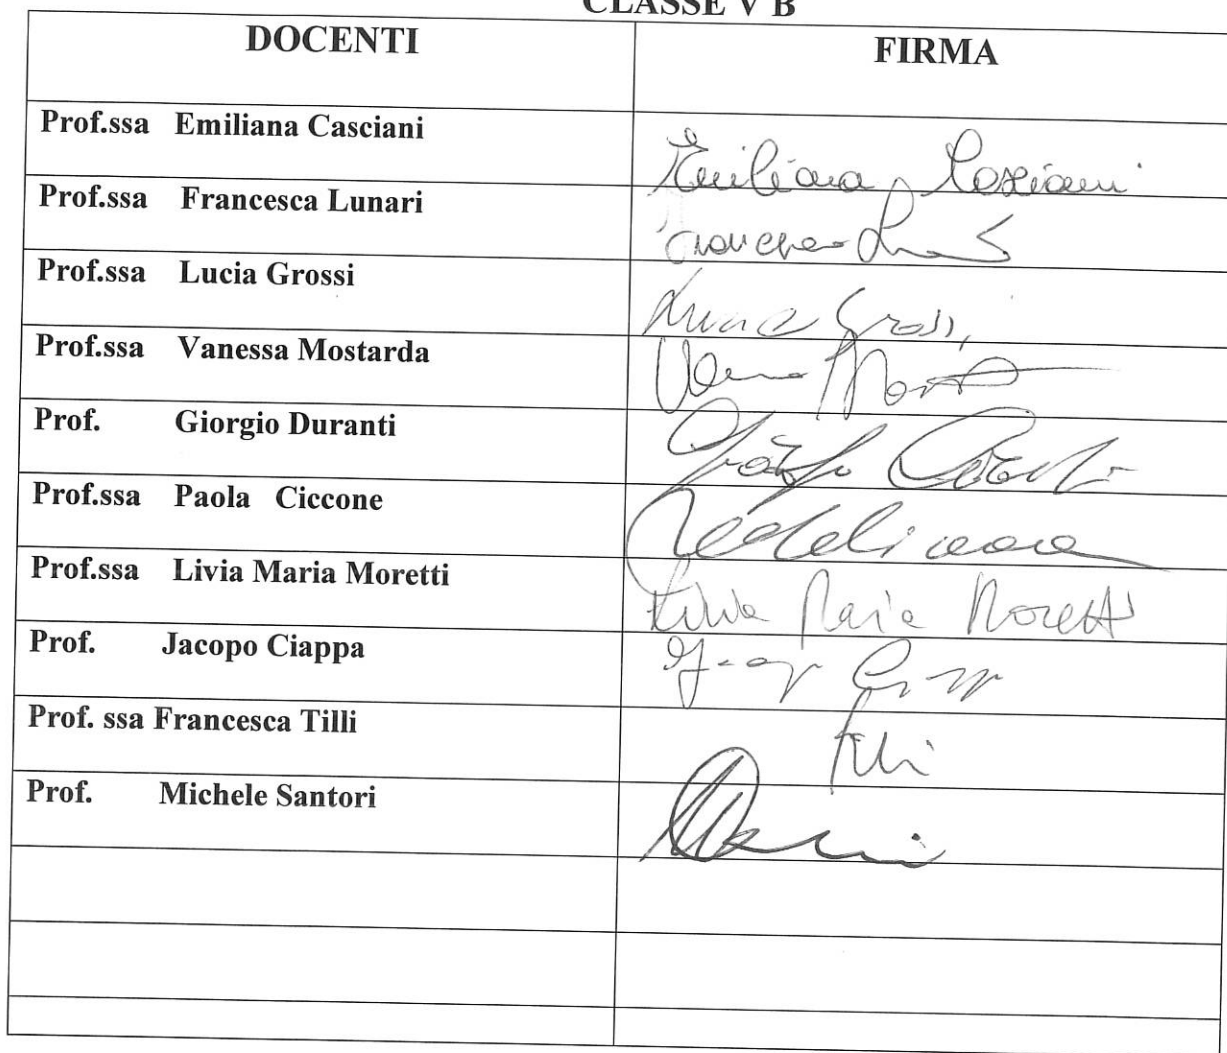 CLASSE V B
DOCENTI FIRMA
Prof.ssa Emiliana Casciani Emiliana Casciani
Prof.ssa Francesca Lunari Francesca
Prof.ssa Lucia Grossi Lucia Grossi
Prof.ssa Vanessa Mostarda
Prof. Giorgio Duranti
Prof.ssa Paola Ciccone
Prof.ssa Livia Maria Moretti Livia Maria Moretti
Prof. Jacopo Ciappa
Prof. ssa Francesca Tilli Tilli
Prof. Michele Santori